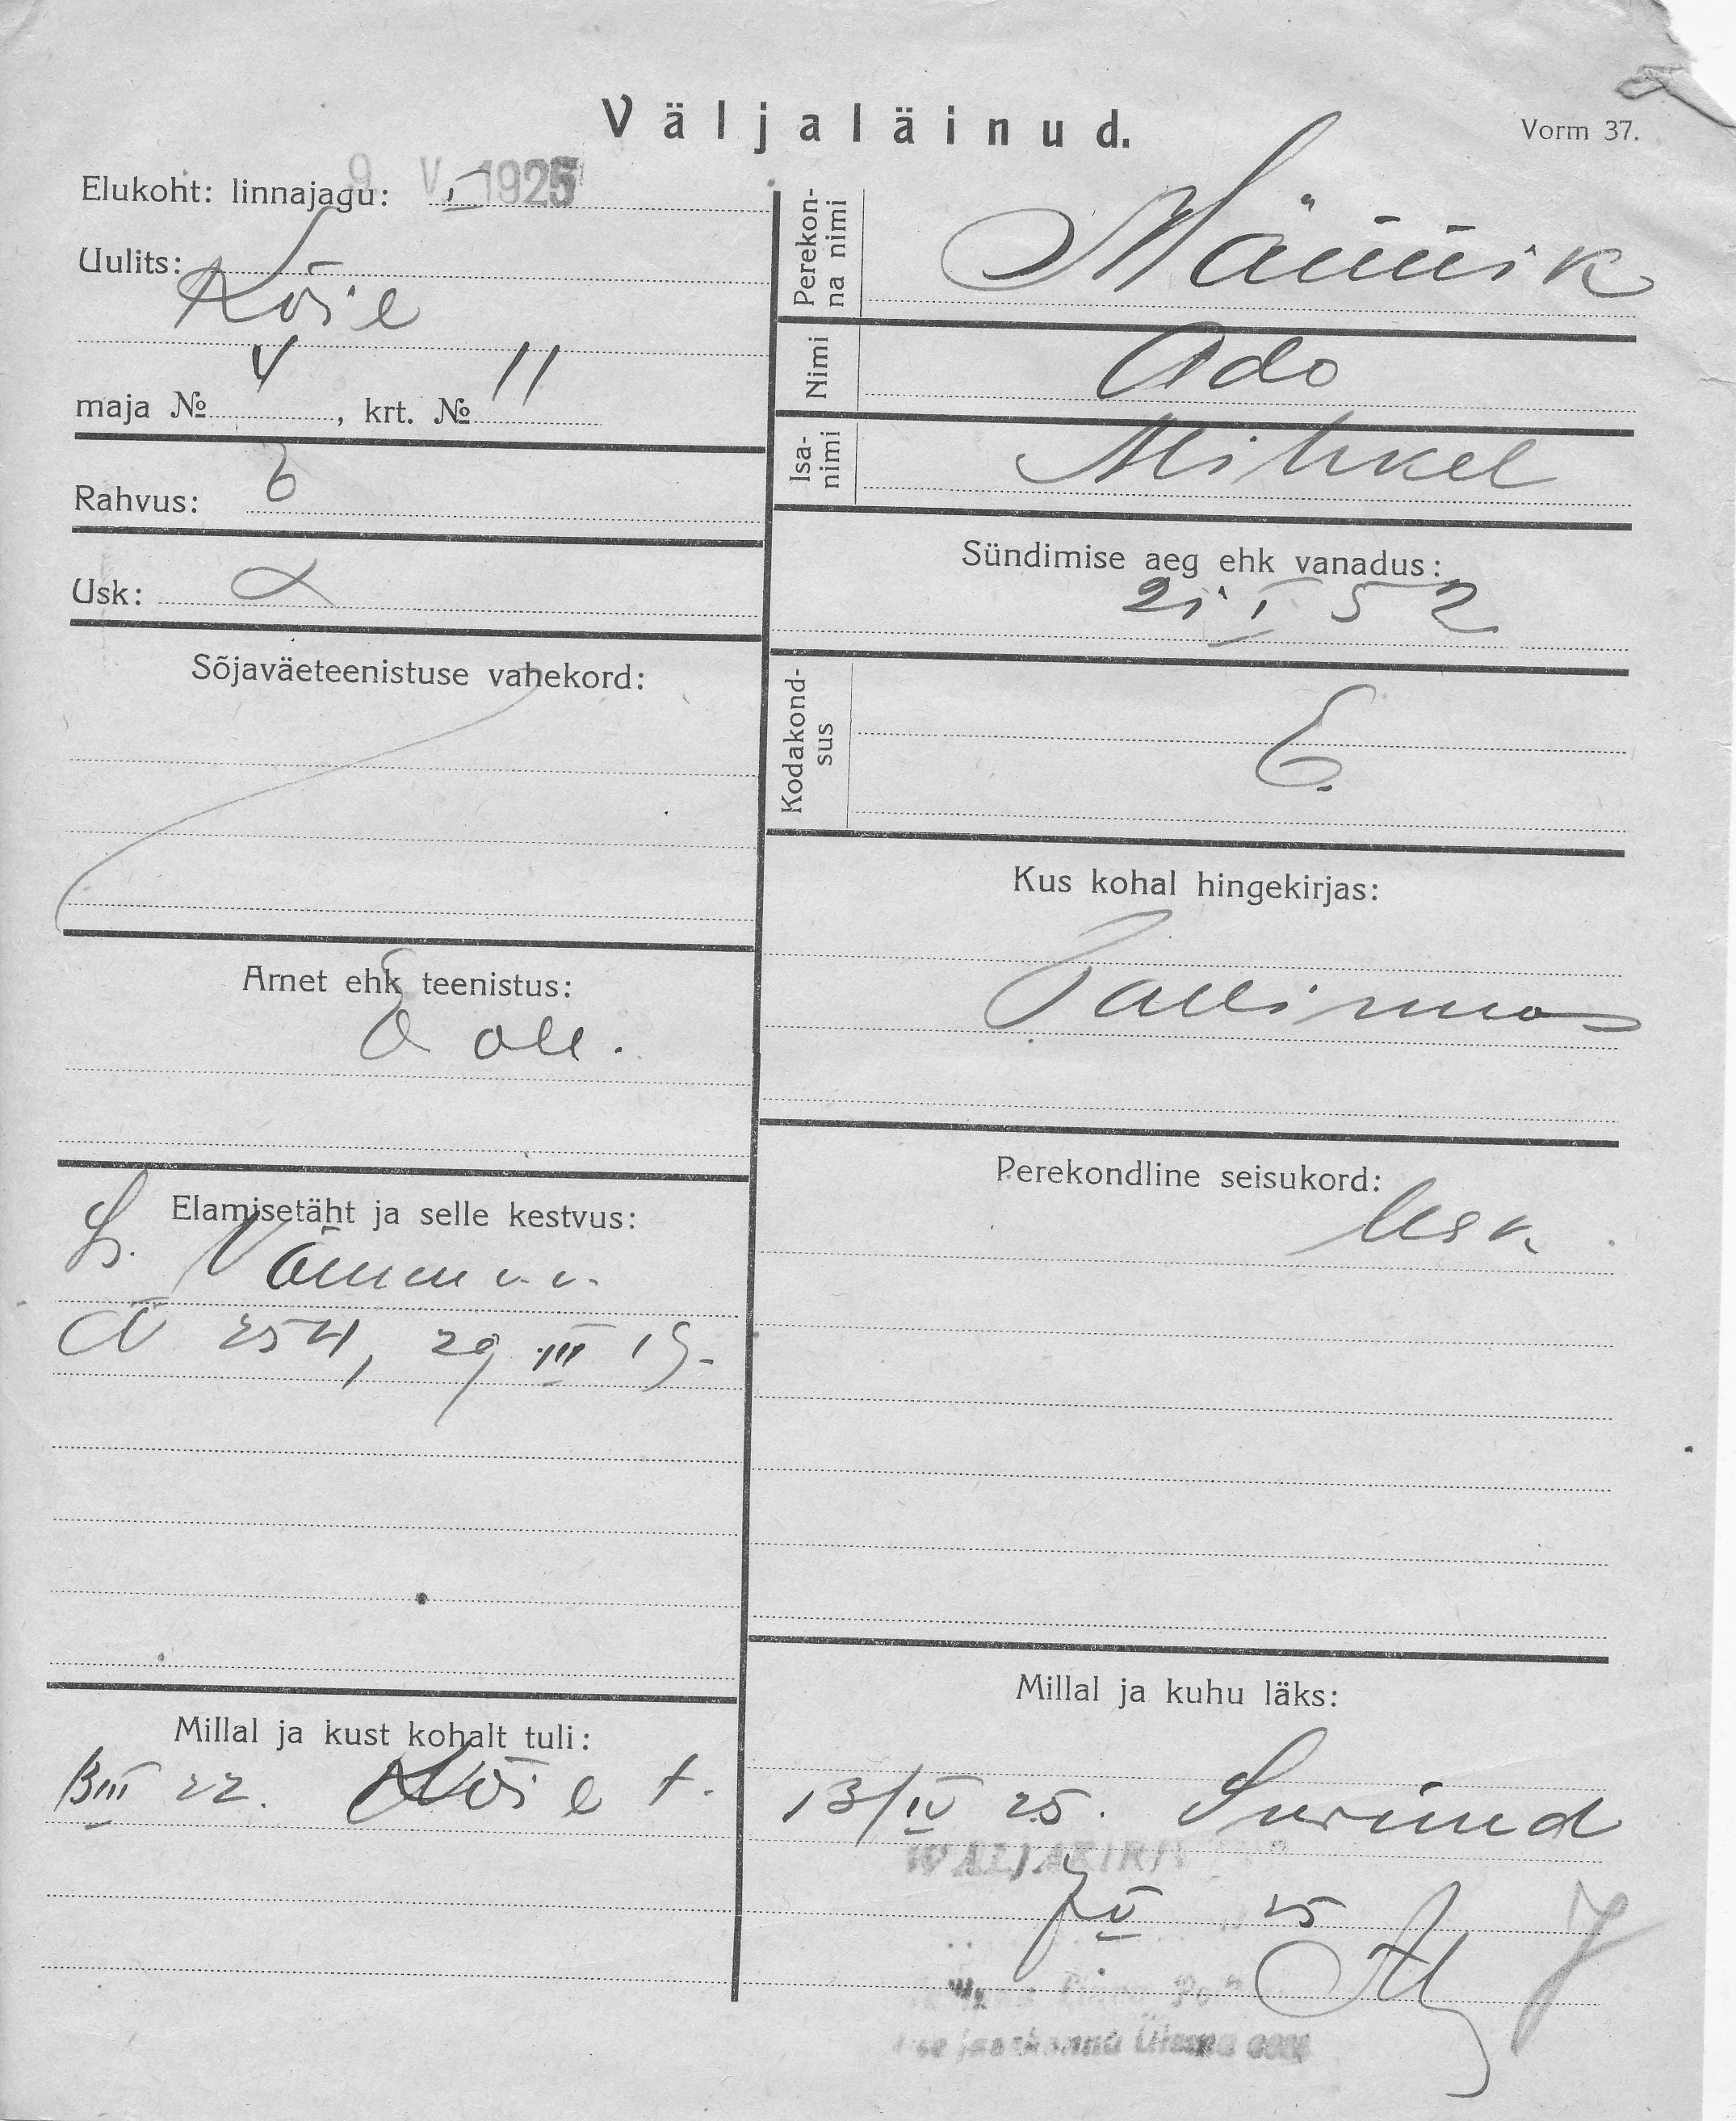 Väljaläinud.
Vorm 37.
9 V 1925
Elukoht: linnajagu: I
Uulits:
Kõie
maja № 4, krt. № 11
Rahvus: E
Usk: L
Sõjaväeteenistuse vahekord:
Amet ehk teenistus:
Ei ole.
Elamisetäht ja selle kestvus:
№ 254, 29 III 19.
Millal ja kust kohalt tuli:
III 22. Kõie t.
Perekonna nimi
Männik
Nimi
Ado
Isanimi
Mihkel
Sündimise aeg ehk vanadus:
21 I 52
Kodakondsus
E.
Kus kohal hingekirjas:
Tallinnas
Perekondline seisukord:
Lesk
Millal ja kuhu läks:
13/IV 25. Surnud
WÄLJAKIR
V 25
jaoskonna Ülema